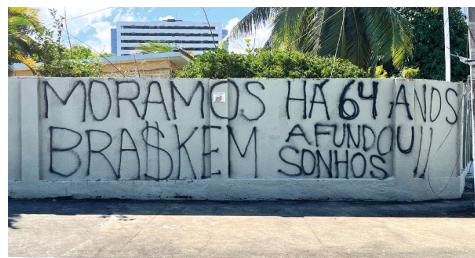 MORAMOS HÁ 64 ANOS
BRA$KEM AFUNDOU!!
SONHOS